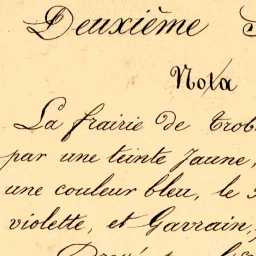 Deuxième
Nota
La frairie de Trob
par une teinte Jaune,
une couleur bleu, le
violette, et Gavrain,